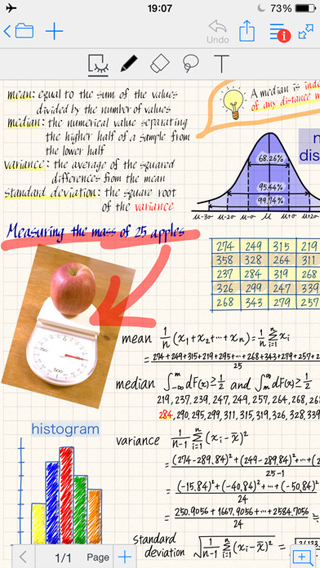 19:07
73%
Undo
T
mean: equal to the sum of the values
divided by the number of values
median: the numerical value separating
the higher half of a sample from
the lower half
variance: the average of the squared
differences from the mean
standard deviation: the square root
of the variance
A median is
of any distance
68.26%
95.44%
99.74%
μ-3σ μ-2σ μ-σ μ μ+σ μ+2σ
Measuring the mass of 25 apples
274 249 315 219
358 328 264 311
237 284 319 268
326 299 247 339
268 343 279 257
mean 1/n (x₁+x₂+⋯+xₙ) = 1/n Σⁿᵢ₌₁ xᵢ
= 274+249+315+219+295+⋯+268+343+279+257+2
25
median ∫ᵐ₋∞ dF(x) ≥ 1/2 and ∫^∞ₘ dF(x) ≥ 1/2
219, 237, 239, 247, 249, 257, 264, 268, 26
284, 290, 295, 299, 311, 315, 319, 326, 328, 339
histogram
variance 1/n-1 Σⁿᵢ₌₁ (xᵢ - x̄)²
= (274-289.84)²+(249-289.84)²+⋯
25-1
= (-15.84)²+(-40.84)²+⋯+(-50.84)²
24
= 250.9056+1667.9056+⋯+2584.7056
24
standard
deviation √1/n-1 Σⁿᵢ₌₁ (xᵢ - x̄)² =
1/1 Page